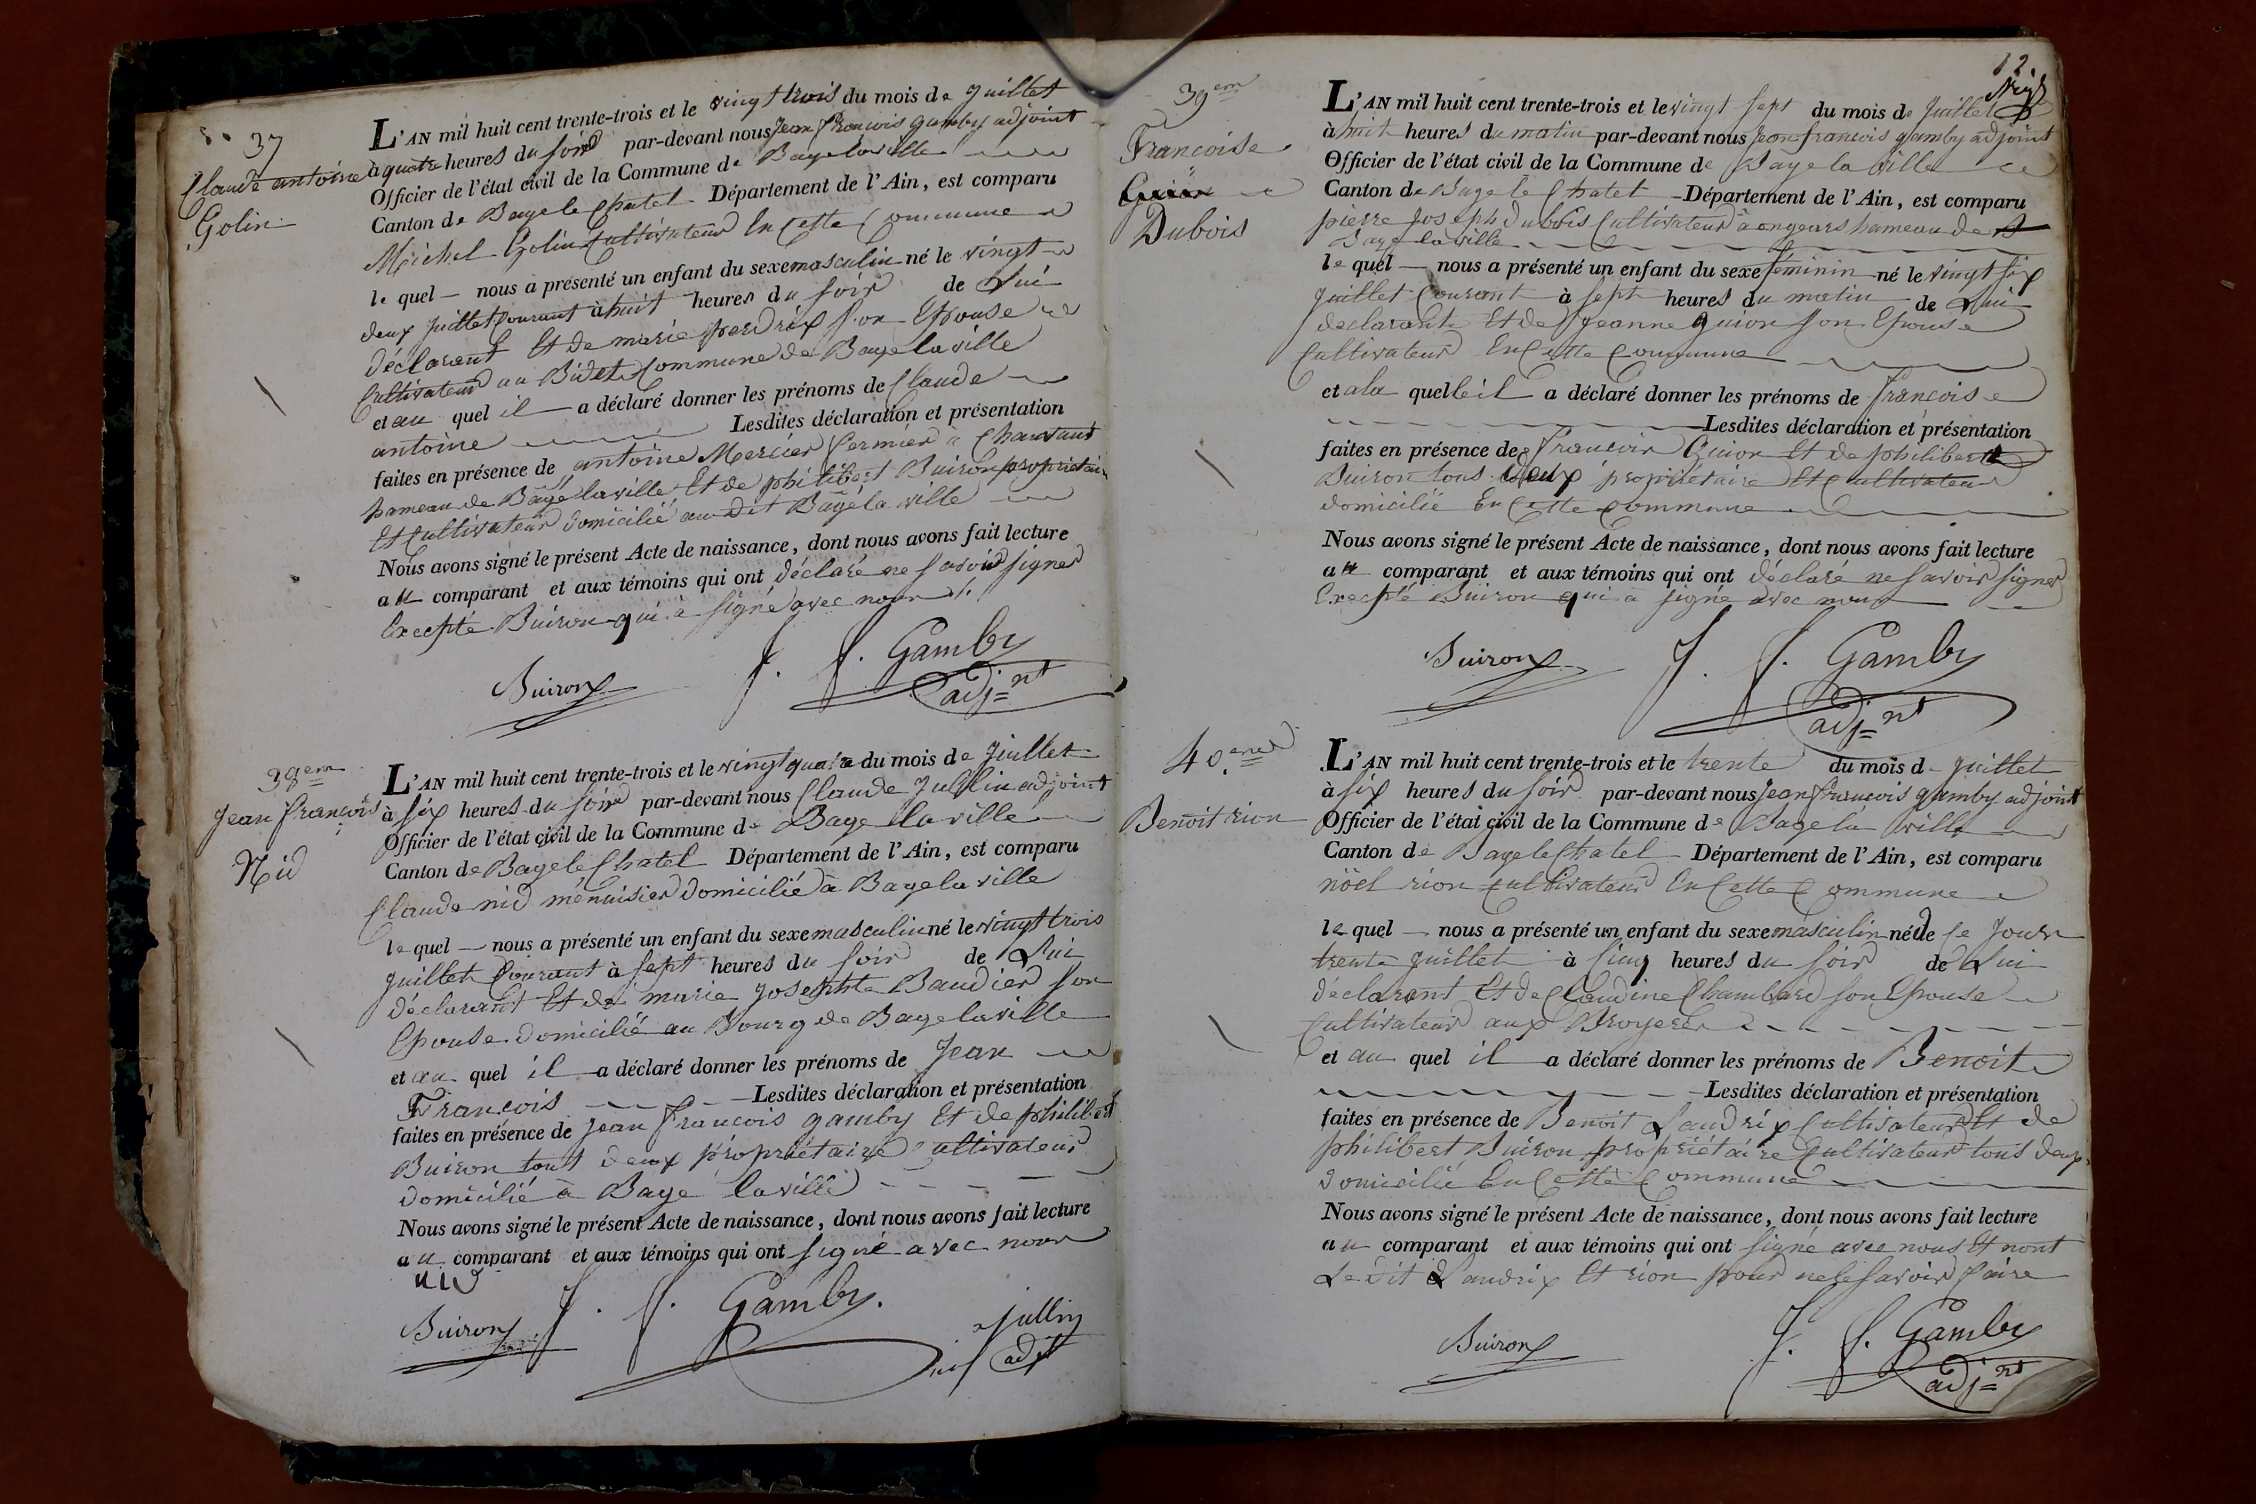 37
Claude antoine
Golin
L'AN mil huit cent trente-trois et le vingt trois du mois de juillet
à quatre heures du soir par-devant nous Jean francois gamby adjoint
Officier de l'état civil de la Commune de Bage la ville
Canton de Bage le Chatel Département de l'Ain, est comparu
Michel Golin Cultivateur En Cette Commune
le quel nous a présenté un enfant du sexe masculin né le vingt
deux juillet Courant à huit heures du soir de Lui
déclarant Et de marie perdrix son Epouse
Cultivateur au Bidet Commune de Bage la ville
et au quel il a déclaré donner les prénoms de Claude
antoine Lesdites déclaration et présentation
faites en présence de antoine Mercier fermier à Chavant
hameau de Bâgé la ville Et de philibert Buiron propriétaire
Et Cultivateur domicilié au dit Bâgé la ville
Nous avons signé le présent Acte de naissance, dont nous avons fait lecture
au comparant et aux témoins qui ont déclaré ne savoir signer
Excepté Buiron qui à signé avec nous
Buiron J. f. Gamby
adj=nt
38em
Jean francois
Nid
L'AN mil huit cent trente-trois et le vingt quatre du mois de juillet
à six heures du soir par-devant nous Claude Jullin adjoint
Officier de l'état civil de la Commune de Bage la ville
Canton de Bage le Chatel Département de l'Ain, est comparu
Claude nid ménuisier domicilié à Bage la ville
le quel nous a présenté un enfant du sexe masculin né le vingt trois
juillet Courant à sept heures du soir de Lui
déclarant Et de marie josephte Baudier son
Epouse domicilié au Bourg de Bage la ville
et au quel il a déclaré donner les prénoms de Jean
François Lesdites déclaration et présentation
faites en présence de jean francois gamby Et de philibert
Buiron tout deux propriétaire Cultivateur
domicilié à Bage la ville
Nous avons signé le présent Acte de naissance, dont nous avons fait lecture
au comparant et aux témoins qui ont signé avec nous
nid
Buiron J. f. Gamby. Jullin
adjt
12
39em
Francoise
Dubois
L'AN mil huit cent trente-trois et le vingt sept du mois de juillet
à huit heures du matin par-devant nous jean francois gamby adjoint
Officier de l'état civil de la Commune de Bage la ville
Canton de Bage le Chatel Département de l'Ain, est comparu
pierre joseph dubois Cultivateur à ongears hameau de
Bage la ville
le quel nous a présenté un enfant du sexe féminin né le vingt six
juillet Courant à sept heures du matin de Lui
declarant Et de Jeanne guion son Epouse
Cultivateur En Cette Commune
et a la quelle il a déclaré donner les prénoms de francoise
Lesdites déclaration et présentation
faites en présence de francois Guion Et de philibert
Buiron tous deux propriétaire Et Cultivateur
domicilié En Cette Commune
Nous avons signé le présent Acte de naissance, dont nous avons fait lecture
au comparant et aux témoins qui ont déclaré ne savoir signer
Excepté Buiron qui à signé avec nous
Buiron J. f. Gamby
adj=nt
40.eme
Benoit rion
L'AN mil huit cent trente-trois et le trente du mois de juillet
à six heures du soir par-devant nous jean francois gamby adjoint
Officier de l'état civil de la Commune de Bage la ville
Canton de Bage le Chatel Département de l'Ain, est comparu
nöel rion Cultivateur En Cette Commune
le quel nous a présenté un enfant du sexe masculin né de ce jour
trente juillet à cinq heures du soir de Lui
déclarant Et de Claudine Chambard son Epouse
Cultivateur aux Broyeres
et au quel il a déclaré donner les prénoms de Benoit
Lesdites déclaration et présentation
faites en présence de Benoit Landrix Cultivateur Et de
philibert Buiron propriétaire Cultivateur tous deux
domicilié En Cette Commune
Nous avons signé le présent Acte de naissance, dont nous avons fait lecture
au comparant et aux témoins qui ont signé avec nous Et nont
Le dit Landrix Et rion pour ne le savoir faire
Buiron J. f. Gamby
adj=nt